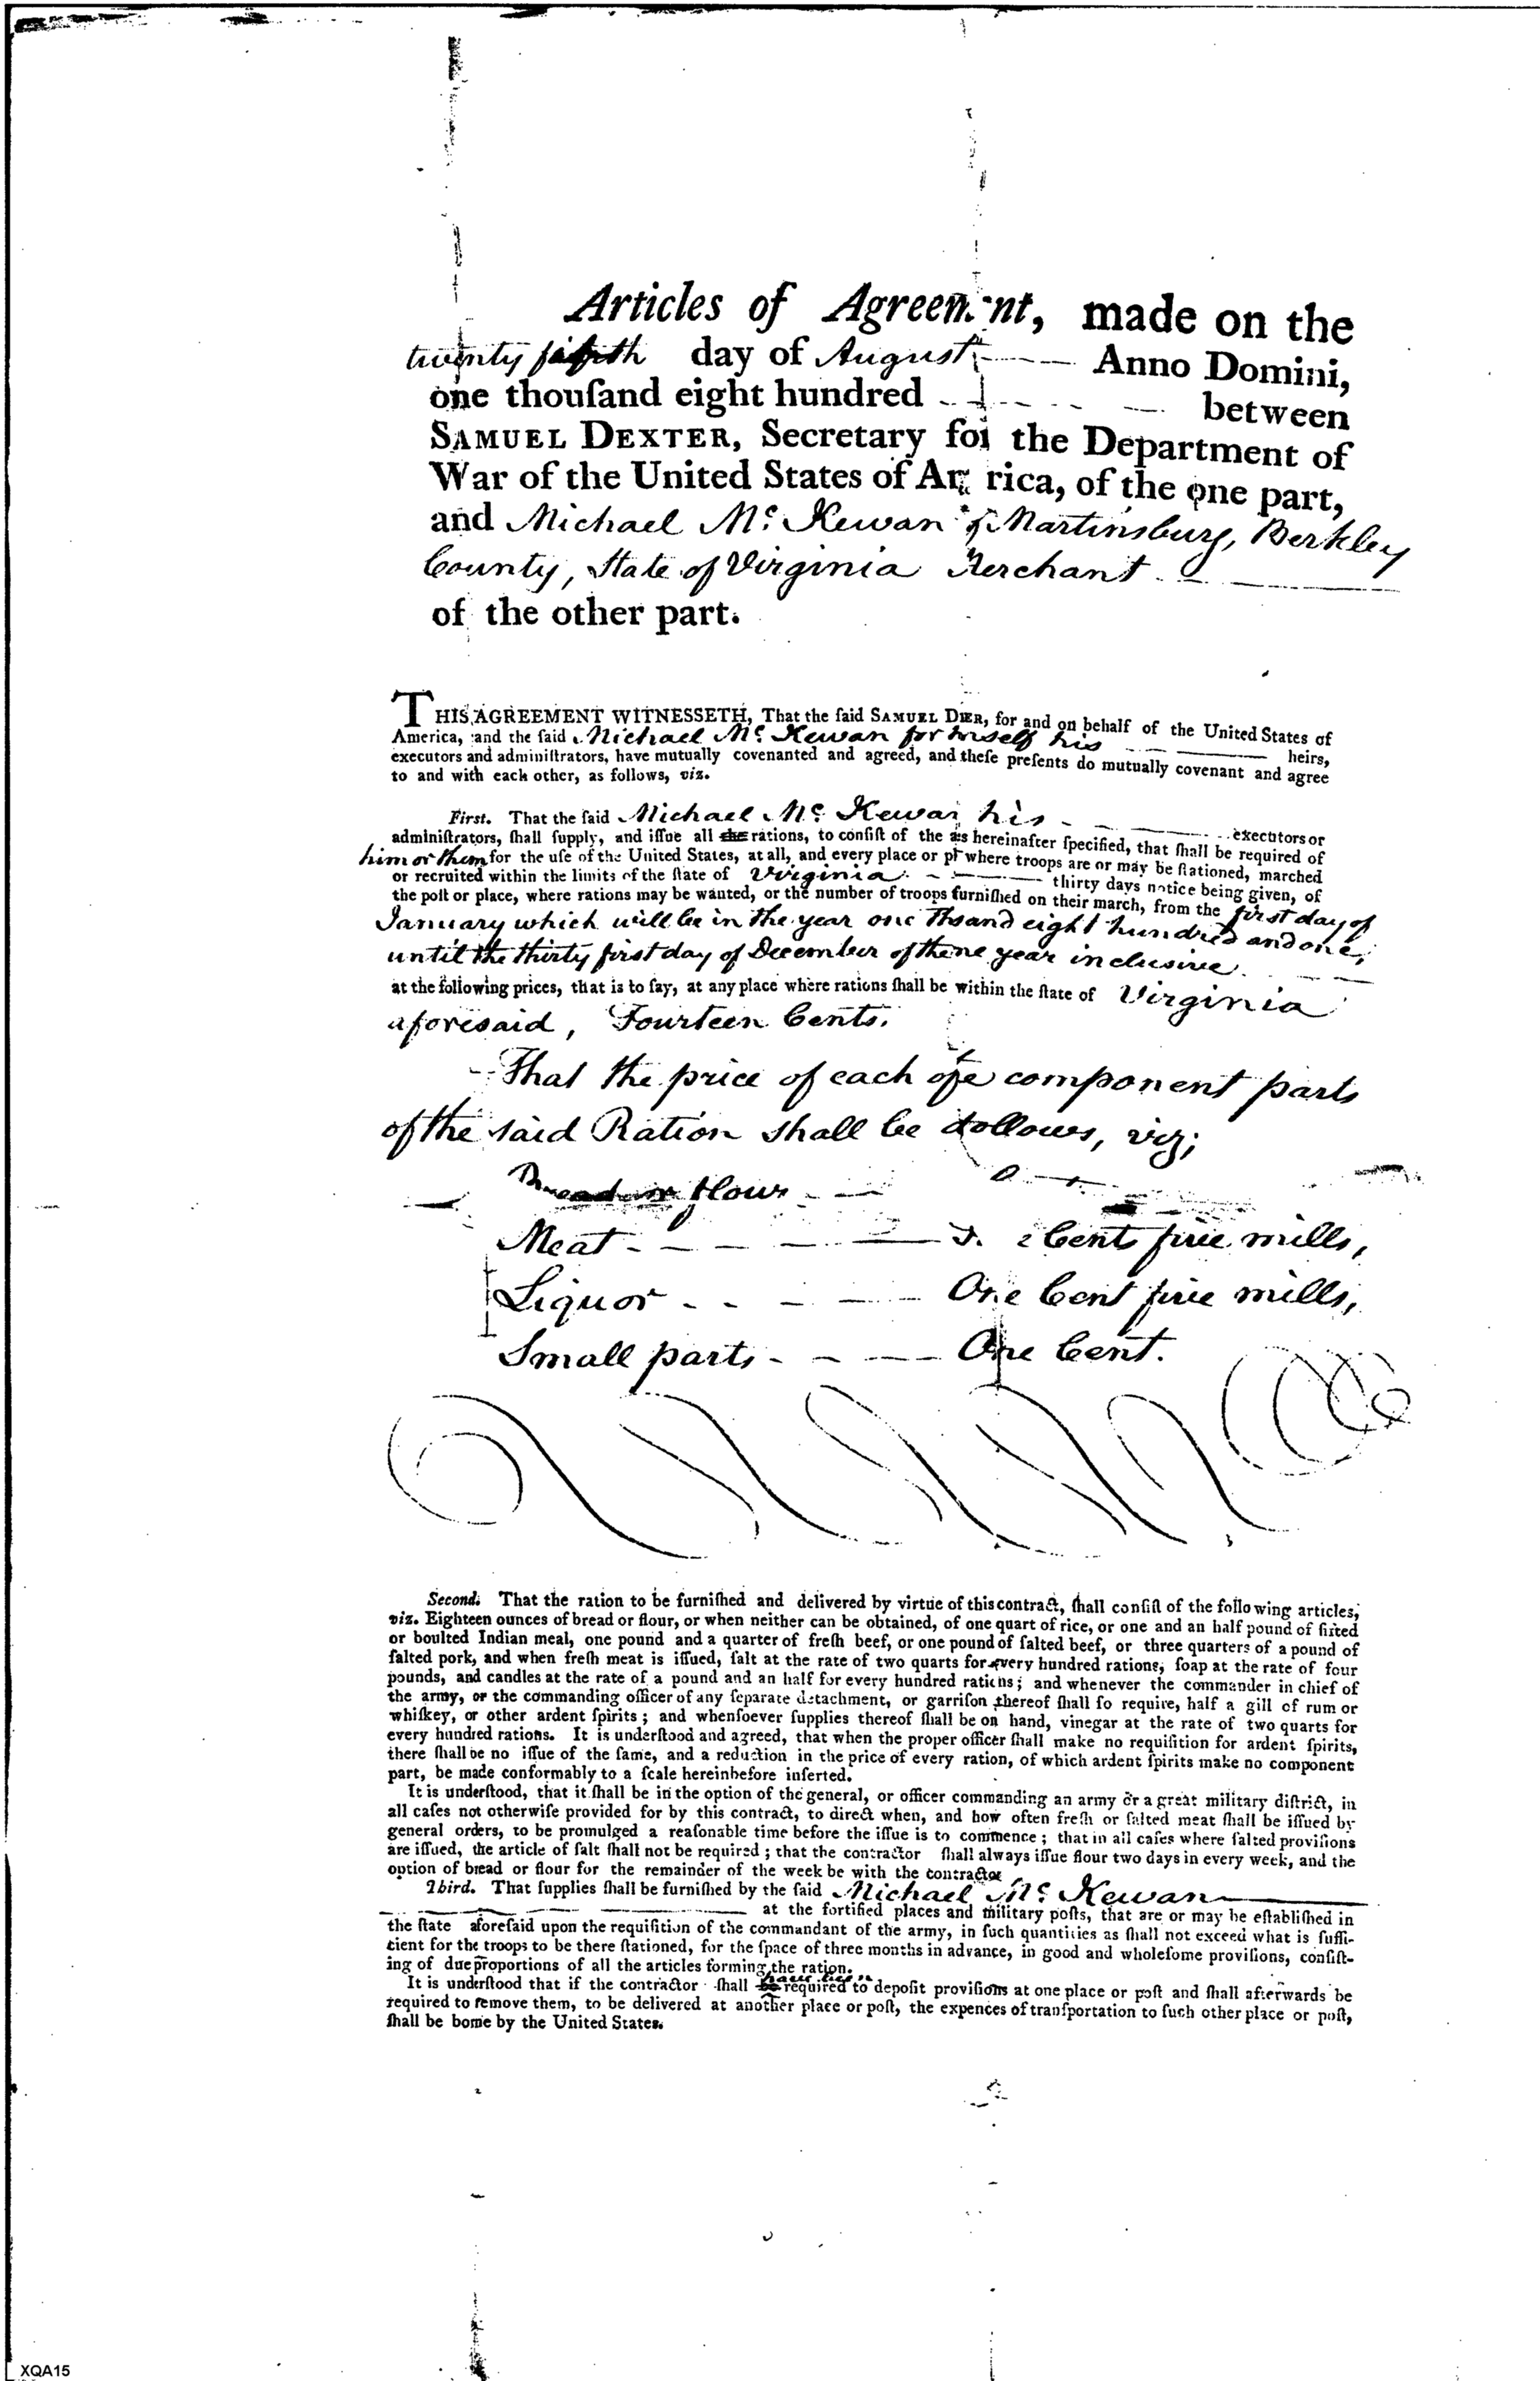 Articles of Agreem nt, made on the
twenty fifth day of August Anno Domini,
one thouſand eight hundred between
SAMUEL DEXTER, Secretary for the Department of
War of the United States of A rica, of the one part,
and Michael Mc Kewan of Martinsburg, Berkley
County, State of Virginia Merchant
of the other part.
THIS AGREEMENT WITNESSETH, That the ſaid SAMUEL DER, for and on behalf of the United States of
America, and the ſaid Michael Mc Kewan for himself his heirs,
executors and adminiſtrators, have mutually covenanted and agreed, and theſe preſents do mutually covenant and agree
to and with each other, as follows, viz.
First. That the ſaid Michael Mc Kewan his executors or
adminiſtrators, ſhall ſupply, and iſſue all the rations, to conſiſt of the as hereinafter ſpecified, that ſhall be required of
him or them for the uſe of the United States, at all, and every place or where troops are or may be ſtationed, marched
or recruited within the limits of the ſtate of Virginia thirty days notice being given, of
the poſt or place, where rations may be wanted, or the number of troops furniſhed on their march, from the first day of
January which will be in the year one thsand eight hundred and one,
until the thirty first day of December of the year inclusive
at the following prices, that is to ſay, at any place where rations ſhall be within the ſtate of Virginia
aforesaid, Fourteen Cents.
That the price of each component parts
of the said Ration shall be follows, viz;
Bread or flour
Meat Cents five mills,
Liquor One Cent five mills,
Small parts One Cent.
Second. That the ration to be furniſhed and delivered by virtue of this contract, ſhall conſiſt of the following articles,
viz. Eighteen ounces of bread or flour, or when neither can be obtained, of one quart of rice, or one and an half pound of ſifted
or boulted Indian meal, one pound and a quarter of freſh beef, or one pound of ſalted beef, or three quarters of a pound of
ſalted pork, and when freſh meat is iſſued, ſalt at the rate of two quarts for every hundred rations, ſoap at the rate of four
pounds, and candles at the rate of a pound and an half for every hundred rations; and whenever the commander in chief of
the army, or the commanding officer of any ſeparate detachment, or garriſon thereof ſhall ſo require, half a gill of rum or
whiſkey, or other ardent ſpirits; and whenſoever ſupplies thereof ſhall be on hand, vinegar at the rate of two quarts for
every hundred rations. It is underſtood and agreed, that when the proper officer ſhall make no requiſition for ardent ſpirits,
there ſhall be no iſſue of the ſame, and a reduction in the price of every ration, of which ardent ſpirits make no component
part, be made conformably to a ſcale hereinbefore inſerted.
It is underſtood, that it ſhall be in the option of the general, or officer commanding an army or a great military diſtrict, in
all caſes not otherwiſe provided for by this contract, to direct when, and how often freſh or ſalted meat ſhall be iſſued by
general orders, to be promulged a reaſonable time before the iſſue is to commence; that in all caſes where ſalted proviſions
are iſſued, the article of ſalt ſhall not be required; that the contractor ſhall always iſſue flour two days in every week, and the
option of bread or flour for the remainder of the week be with the contractor
Third. That ſupplies ſhall be furniſhed by the ſaid Michael Mc Kewan
at the fortified places and military poſts, that are or may be eſtabliſhed in
the ſtate aforeſaid upon the requiſition of the commandant of the army, in ſuch quantities as ſhall not exceed what is ſuffi-
cient for the troops to be there ſtationed, for the ſpace of three months in advance, in good and wholeſome proviſions, conſiſt-
ing of due proportions of all the articles forming the ration.
have been
It is underſtood that if the contractor ſhall be required to depoſit proviſions at one place or poſt and ſhall afterwards be
required to remove them, to be delivered at another place or poſt, the expences of tranſportation to ſuch other place or poſt,
ſhall be borne by the United States.
XQA15